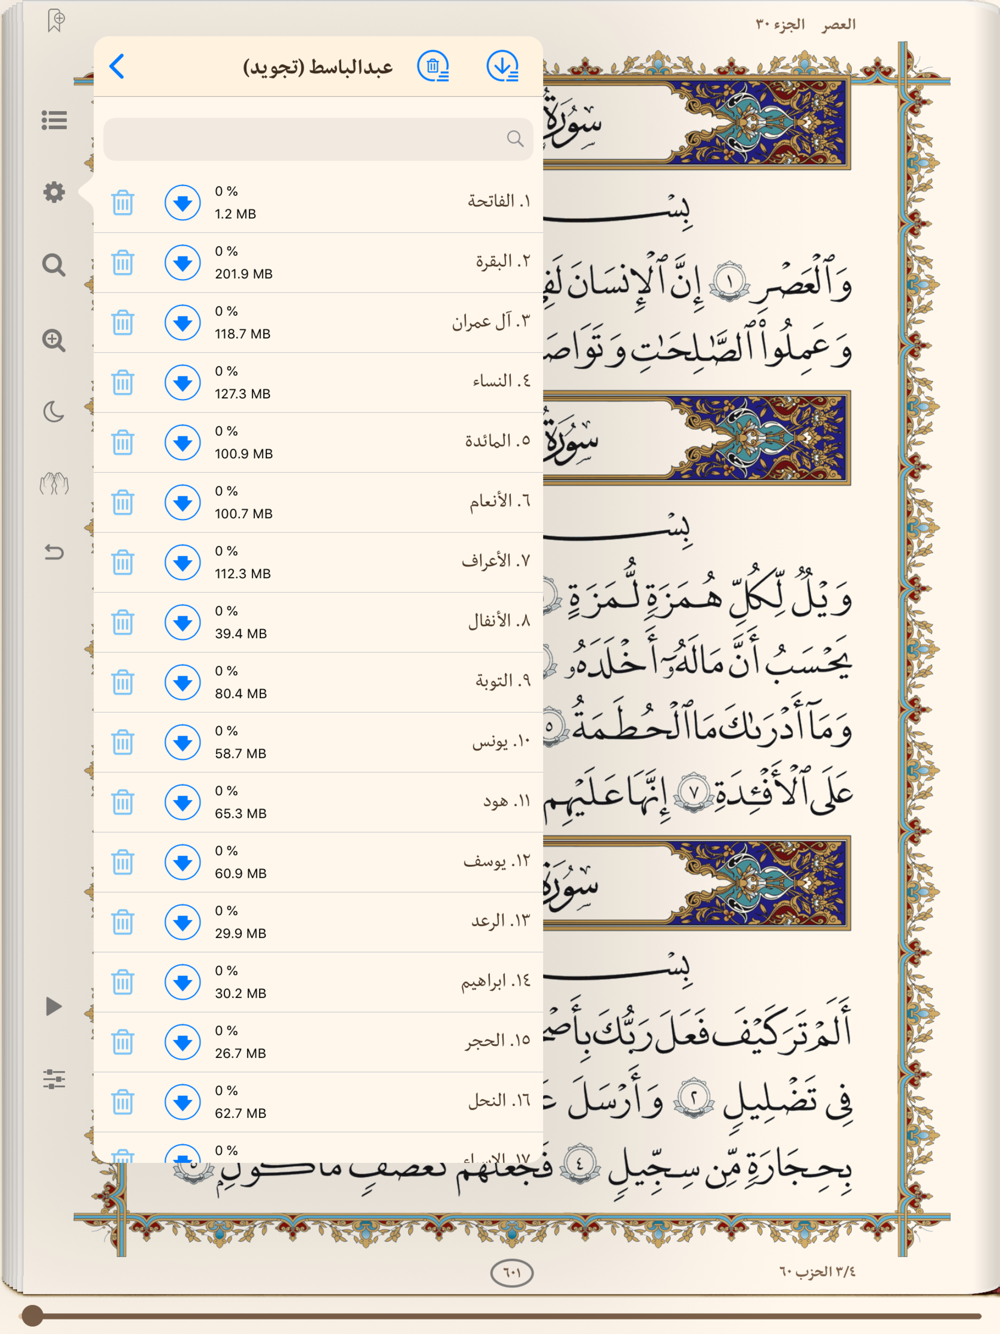 العصر الجزء ٣٠
عبدالباسط (تجويد)
١. الفاتحة
0 %
1.2 MB
٢. البقرة
0 %
201.9 MB
٣. آل عمران
0 %
118.7 MB
٤. النساء
0 %
127.3 MB
٥. المائدة
0 %
100.9 MB
٦. الأنعام
0 %
100.7 MB
٧. الأعراف
0 %
112.3 MB
٨. الأنفال
0 %
39.4 MB
٩. التوبة
0 %
80.4 MB
١٠. يونس
0 %
58.7 MB
١١. هود
0 %
65.3 MB
١٢. يوسف
0 %
60.9 MB
١٣. الرعد
0 %
29.9 MB
١٤. ابراهيم
0 %
30.2 MB
١٥. الحجر
0 %
26.7 MB
١٦. النحل
0 %
62.7 MB
0 %
سُورَةُ
بِسْ
وَٱلْعَصْرِ ١ إِنَّ ٱلْإِنسَانَ لَفِي
وَعَمِلُوا۟ ٱلصَّـٰلِحَـٰتِ وَتَوَاصَ
سُورَةُ
بِسْ
وَيْلٌ لِّكُلِّ هُمَزَةٍ لُّمَزَةٍ
يَحْسَبُ أَنَّ مَالَهُۥٓ أَخْلَدَهُۥ
وَمَآ أَدْرَىٰكَ مَا ٱلْحُطَمَةُ ٥
عَلَى ٱلْأَفْـِٔدَةِ ٧ إِنَّهَا عَلَيْهِم
سُورَةُ
بِسْ
أَلَمْ تَرَ كَيْفَ فَعَلَ رَبُّكَ بِأَصْ
فِى تَضْلِيلٍ ٢ وَأَرْسَلَ عَ
بِحِجَارَةٍ مِّن سِجِّيلٍ ٤ فَجَعَلَهُمْ كَعَصْفٍ مَّأْكُولٍۭ ٥
٣/٤ الحزب ٦٠
٦٠١